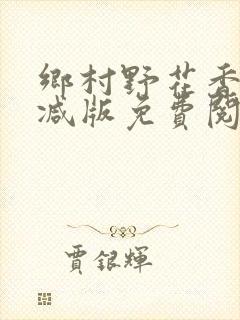 鄉村野花香
減版免費閱
賈銀輝